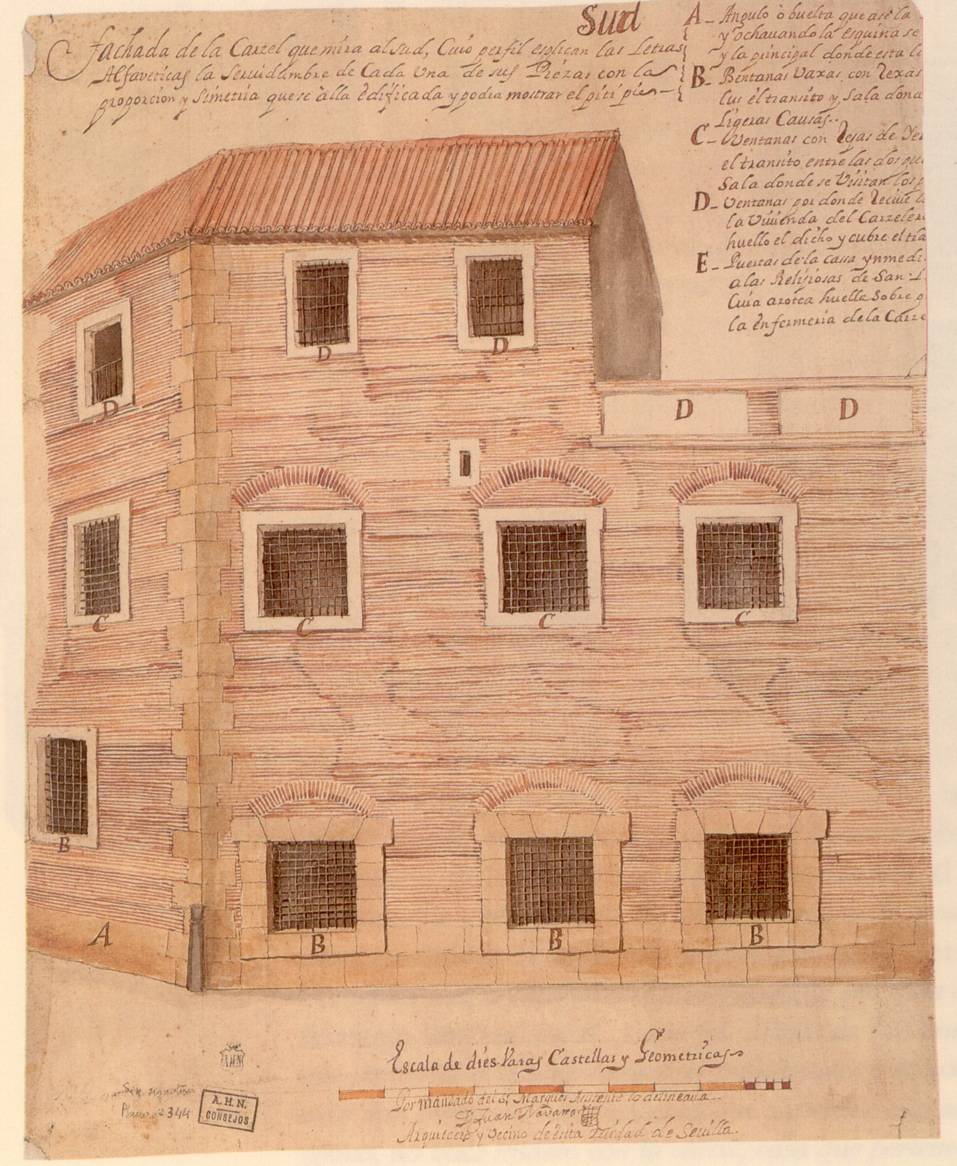 Sud
Fachada de la Carzel que mira al Sud, Cuio perfil esplican las Letras
Alfaveticas la Seruidumbre de Cada Una de sus Piezas con la
proporcion y Simetria que se alla edificada y podra mostrar el piti pie
A_ Angulo ò buelta que açe la
y ochauando la esquina se
y la principal donde esta
B_ Bentanas Vaxas, con Rexas
lus el transito y Sala dond
Ligeras Causas.
C_ Ventanas con Rejas de
el transito entre las dos que
Sala donde se Visitan los p
D_ Ventanas por donde Reciue
la Viuienda del Carzeler
huello el dicho y cubre el
E_ Puertas de la cassa ynmedi
a las Religiosas de San
Cuia azotea huella Sobre
la enfermeria de la Carze
D
D
D
D
D
C
C
C
C
B
B
B
B
A
Escala de dies Varas Castellas y Geometricas
Por mandado del Sr. Marques Asistente lo delineaua
D. Juan Navarro
Arquitecto y Vecino de esta Ciudad de Sevilla.
AHN
Sin signatura
Plano nº 344
A.H.N.
CONSEJOS